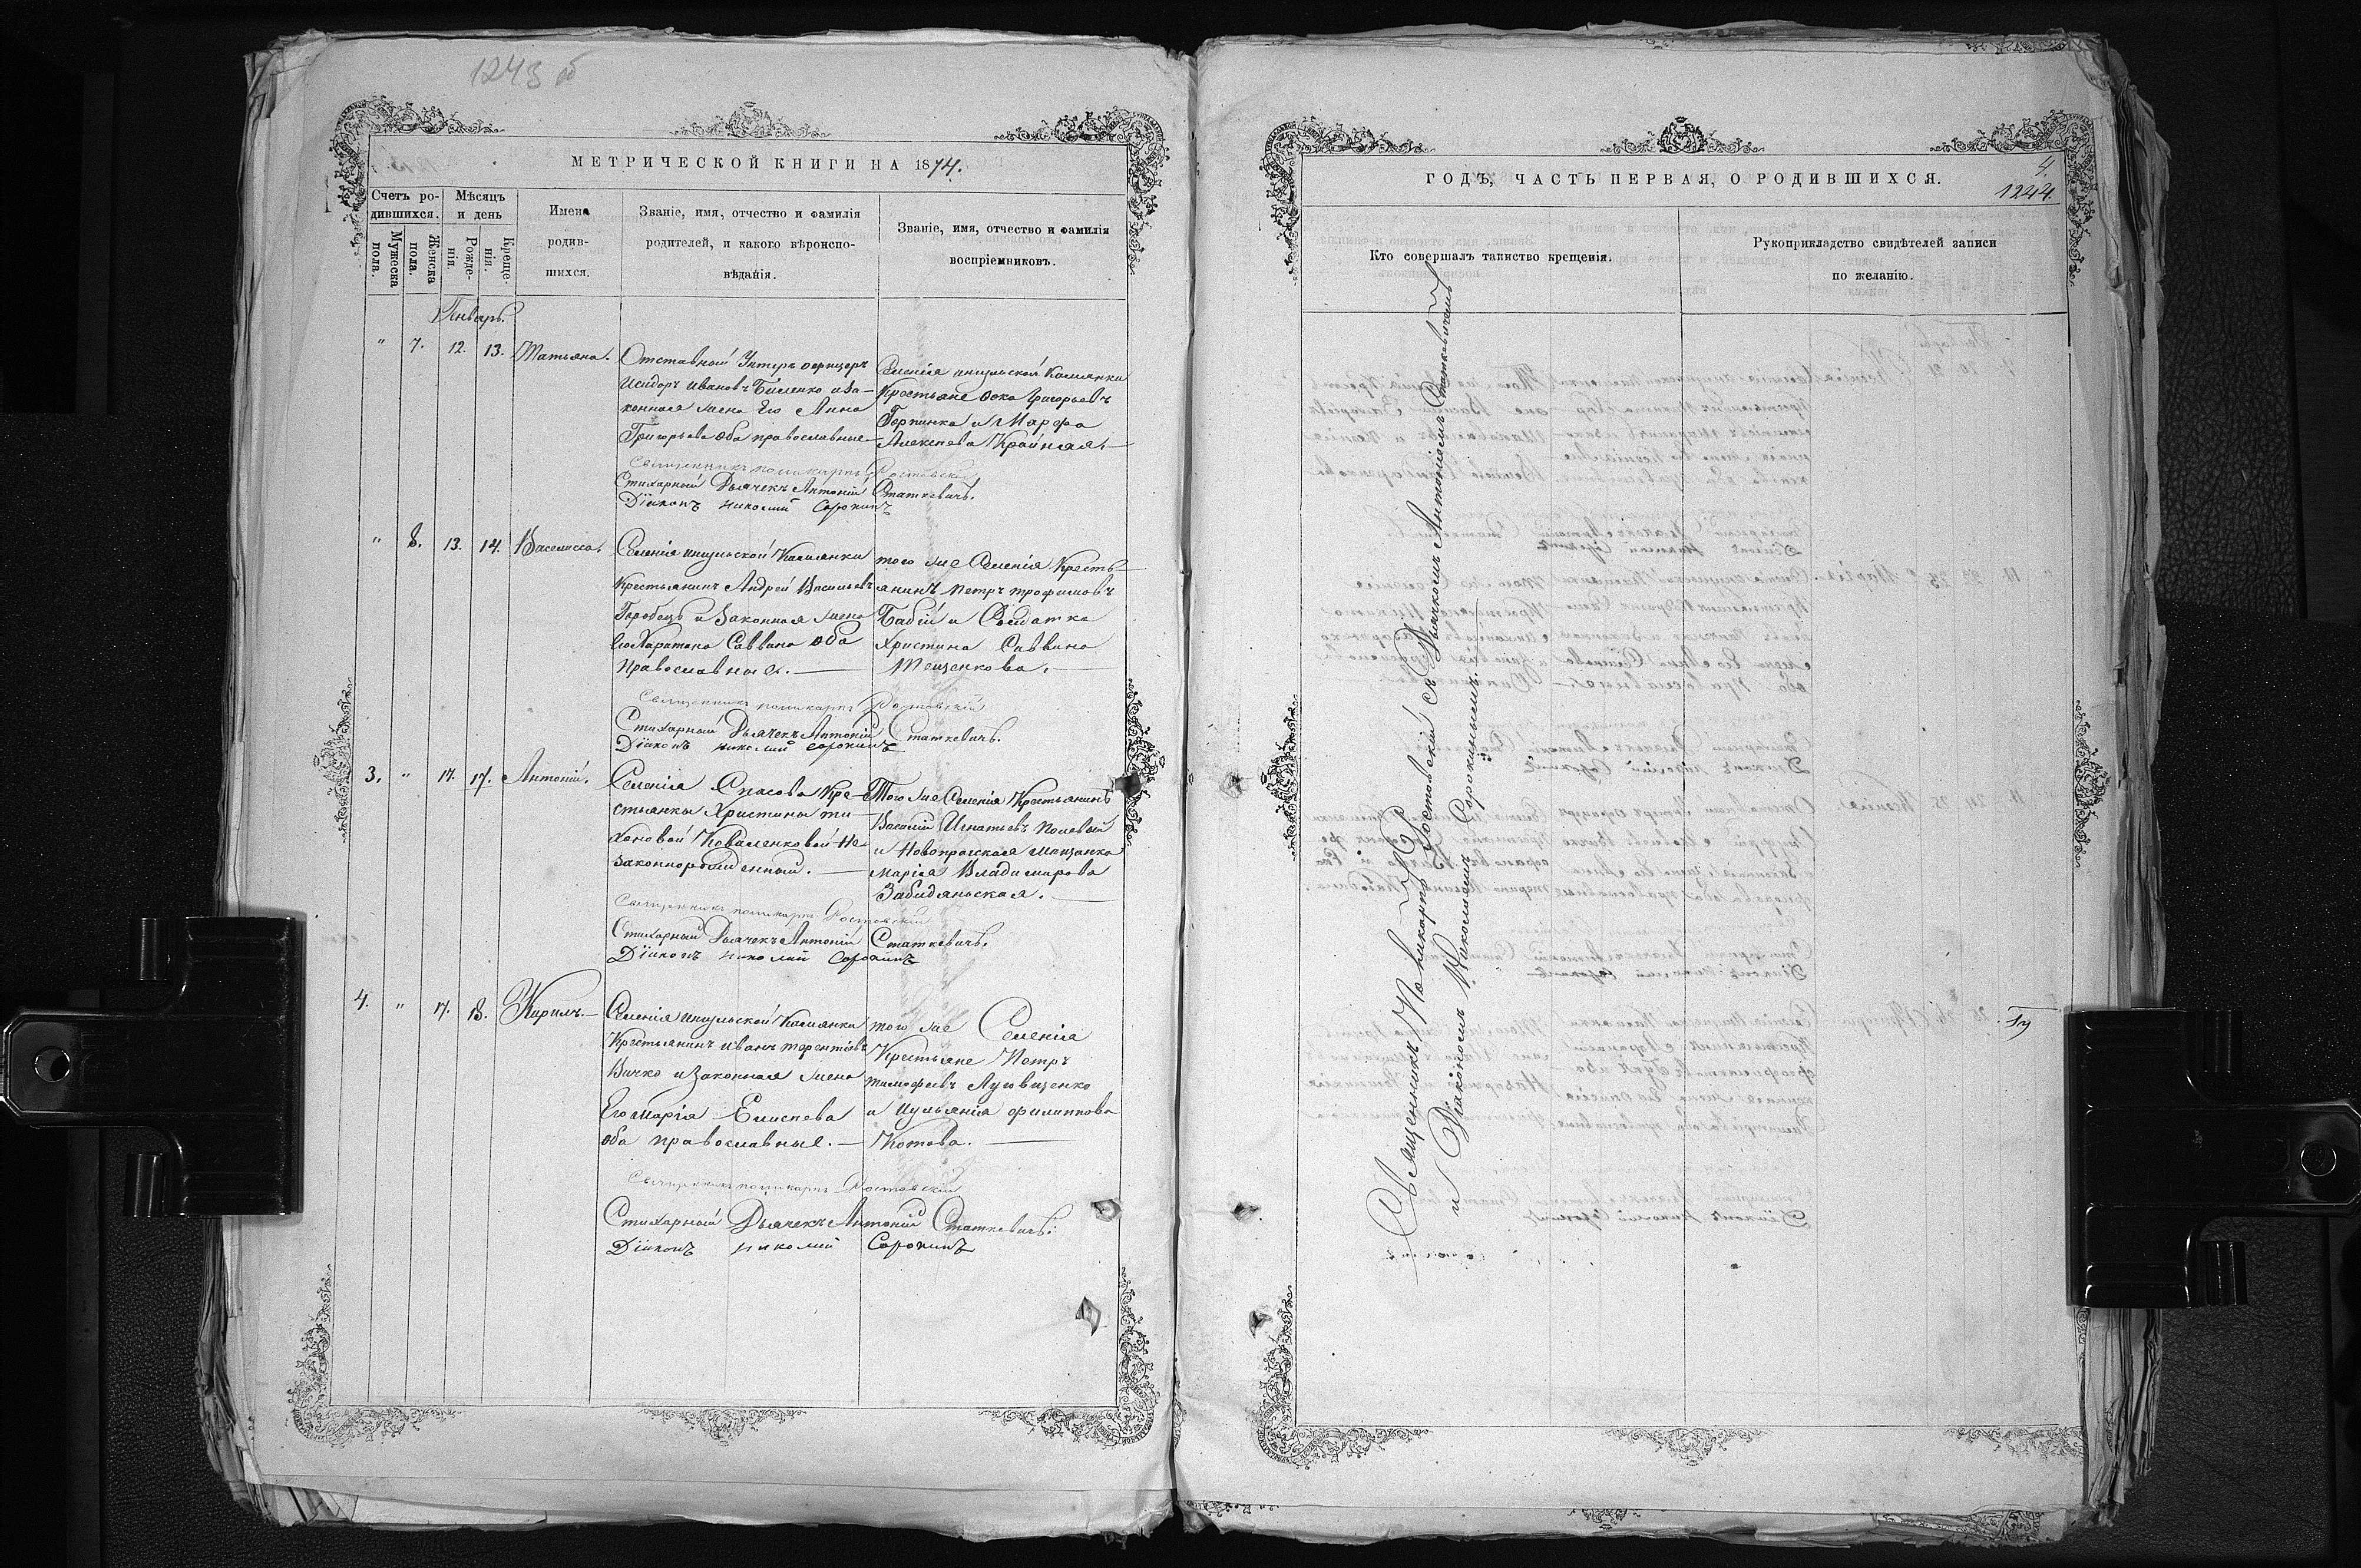 1243 об
МЕТРИЧЕСКОЙ КНИГИ НА 1874.
Счетъ ро-
дившихся.
Мѣсяцъ
и день
Имена
родив-
шихся.
Званіе, имя, отчество и фамилія
родителей, и какого вѣроиспо-
вѣданія.
Званіе, имя, отчество и фамилія
воспріемниковъ.
Мужеска
пола.
Женска
пола.
Рожде-
нія.
Креще-
нія.
Январь.
" 7. 12. 13. Татьяна.
Отставный Унтеръ офицеръ
Исидоръ Ивановъ Биленко и за-
конная жена Его Анна
Григорьева оба православные
Селенія ингульской Камянки
Крестьяне Фока Григорьевъ
Горпинка и Марфа
Алексеева Крайняя.
Священникъ Поликарпъ Ростовскій
Стихарный Дьячекъ Антоній Статкевичъ.
Діаконъ Николай Сорокинъ
" 8. 13. 14. Василисса.
Селенія ингульской Камянки
Крестьянинъ Андрей Васильевъ
Горобецъ и Законная жена
Его Харитана Саввина оба
Православные.
того же Селенія Кресть-
янинъ Петръ трофимовъ
Бабій и Солдатка
Христина Саввина
Тещенкова.
Священникъ Поликарпъ Ростовскій
Стихарный Дьячекъ Антоній Статкевичъ.
Діаконъ Николай Сорокинъ
3. " 17. 17. Антоній.
Селенія Спасова Кре-
стьянки Христины ти-
хоновой Коваленковой Не
законнорожденный.
Того же Селенія Крестьянинъ
Василій Игнатьевъ Полевый
и Новопражская мещанка
Марія Владимирова
Забидянская.
Священникъ Поликарпъ Ростовскій
Стихарный Дьячекъ Антоній Статкевичъ.
Діаконъ Николай Сорокинъ
4. " 17. 18. Кирилъ.
Селенія ингульской Камянки
Крестьянинъ Иванъ терентіевъ
Вичко и Законная жена
Его Марія Елисеева
оба православные.
того же Селенія
Крестьяне Петръ
тимофеевъ Луговиценко
и Иульянія филиппова
Котова.
Священникъ Поликарпъ Ростовскій
Стихарный Дьячекъ Антоній Статкевичъ.
Діаконъ Николай Сорокинъ
4.
1244.
ГОДЪ, ЧАСТЬ ПЕРВАЯ, О РОДИВШИХСЯ.
Кто совершалъ таинство крещенія.
Рукоприкладство свидѣтелей записи
по желанію.
Священникъ Поликарпъ Ростовскій съ Дьячкомъ Антоніемъ Статкевичемъ
и Діакономъ Николаемъ Сорокинымъ.